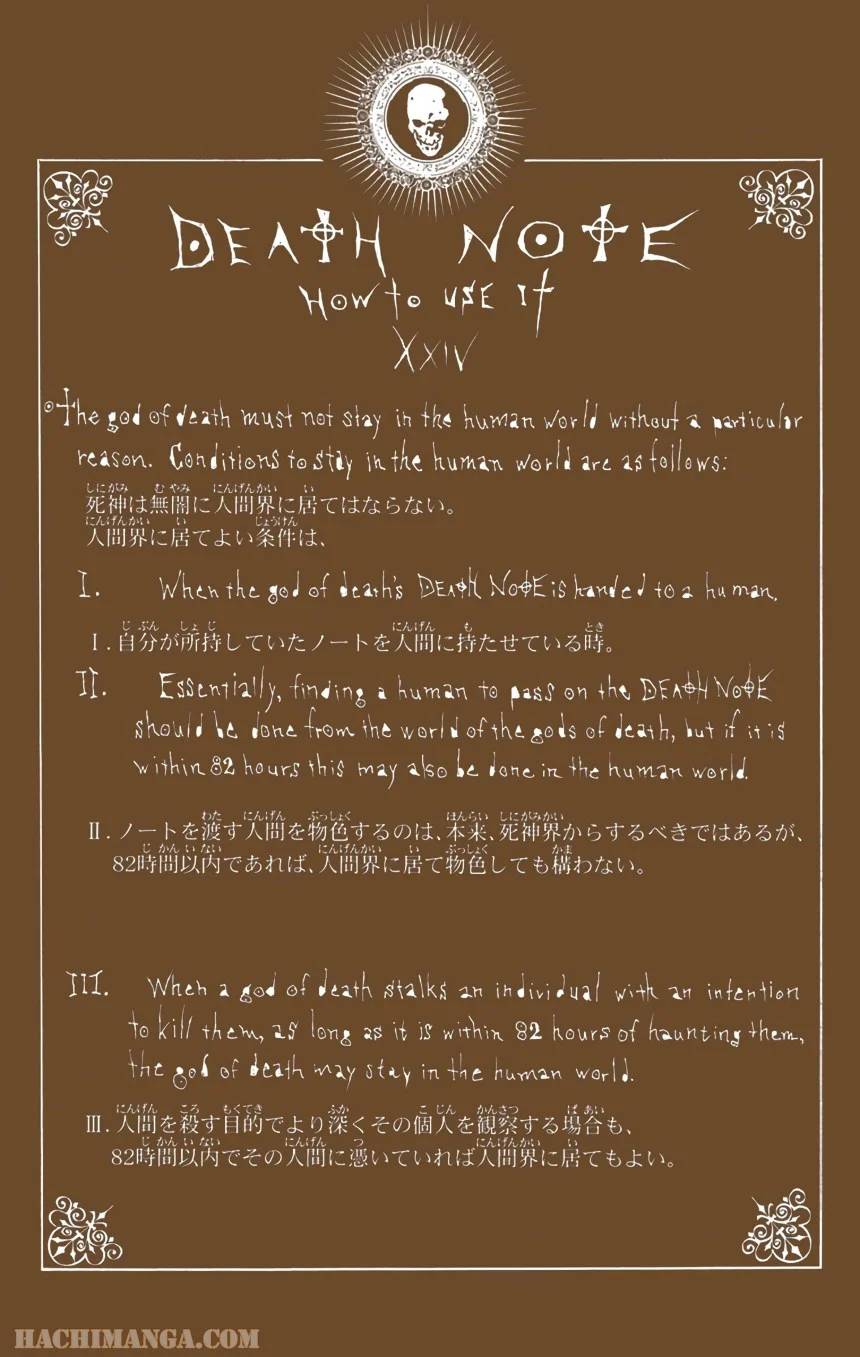 DEATH NOTE
HOW to USE It
XXIV
The god of death must not stay in the human world without a particular
reason. Conditions to stay in the human world are as follows:
死神は無闇に人間界に居てはならない。
人間界に居てよい条件は、
I. When the god of death's DEATH NOTE is handed to a human.
Ⅰ. 自分が所持していたノートを人間に持たせている時。
II. Essentially, finding a human to pass on the DEATH NOTE
should be done from the world of the gods of death, but if it is
within 82 hours this may also be done in the human world.
Ⅱ. ノートを渡す人間を物色するのは、本来、死神界からするべきではあるが、
82時間以内であれば、人間界に居て物色しても構わない。
III. When a god of death stalks an individual with an intention
to kill them, as long as it is within 82 hours of haunting them,
the god of death may stay in the human world.
Ⅲ. 人間を殺す目的でより深くその個人を観察する場合も、
82時間以内でその人間に憑いていれば人間界に居てもよい。
HACHIMANGA.COM